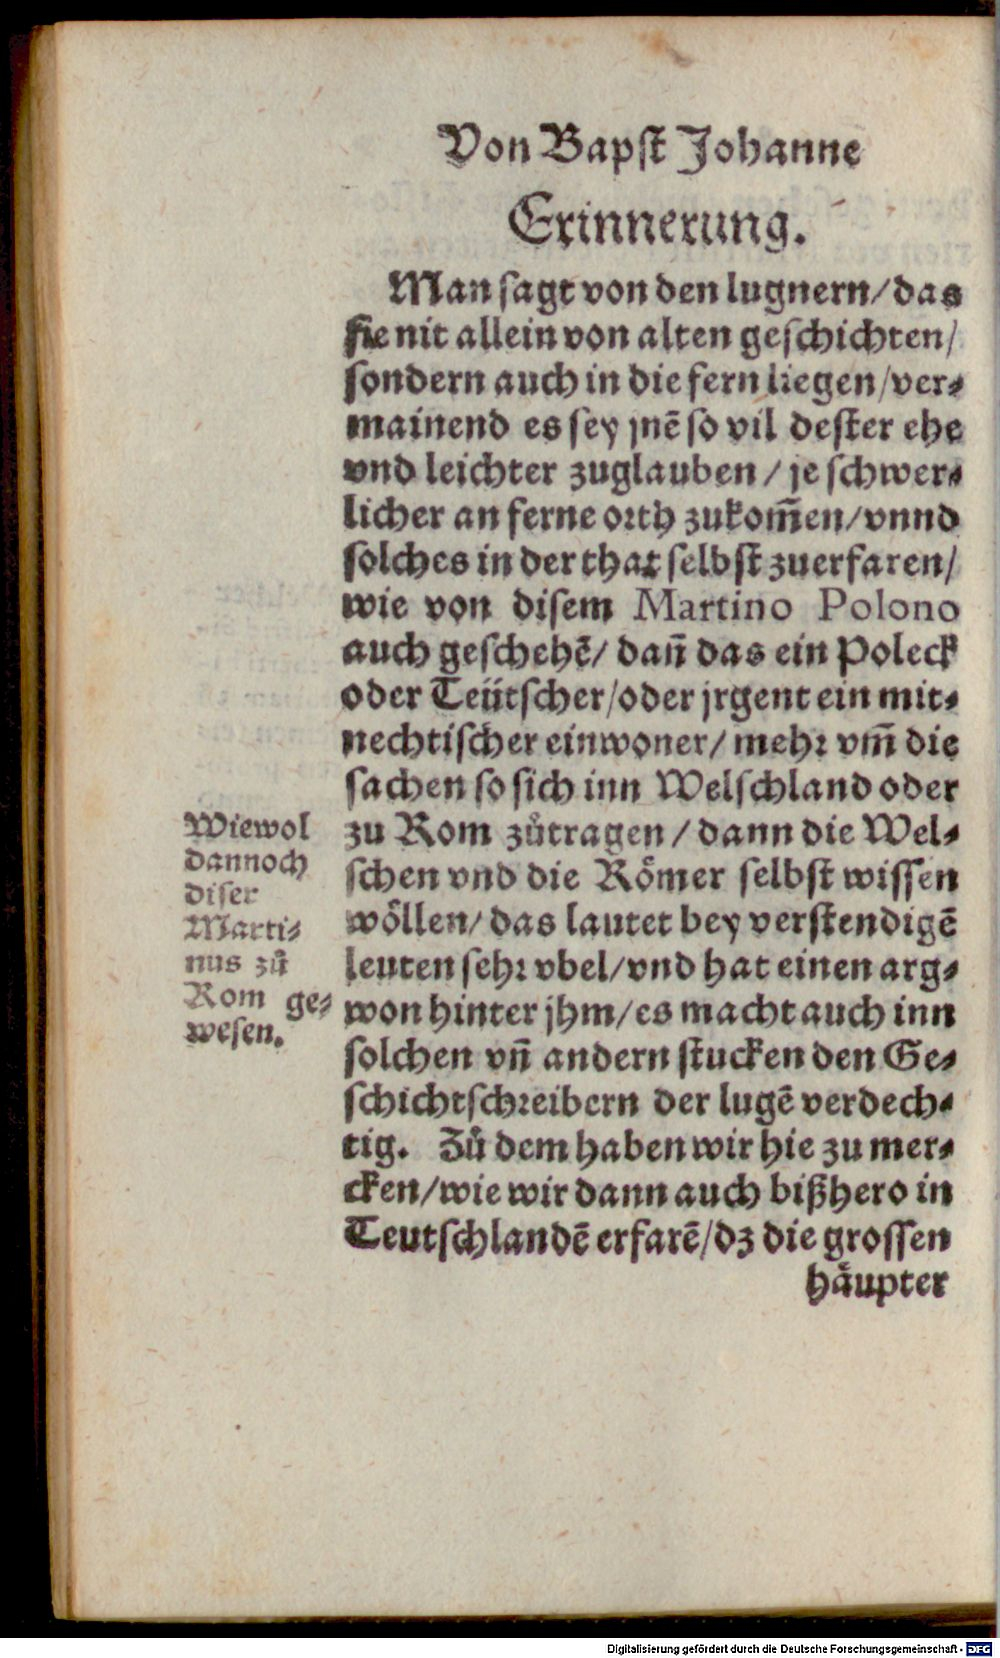 Von Bapst Johanne
Erinnerung.
Man sagt von den lugnern/das
sie nit allein von alten geschichten/
sondern auch in die fern liegen/ver⸗
mainend es sey jnē so vil dester ehe
vnd leichter zuglauben / je schwer⸗
licher an ferne orth zukom̄en/vnnd
solches in der that selbst zuerfaren/
wie von disem Martino Polono
auch geschehē/ dan̄ das ein Poleck
oder Teütscher/oder jrgent ein mit⸗
nechtischer einwoner/ mehr vm̄ die
sachen so sich inn Welschland oder
zu Rom zůtragen / dann die Wel⸗
schen vnd die Römer selbst wissen
wöllen/ das lautet bey verstendigē
leuten sehr vbel/vnd hat einen arg⸗
won hinter jhm/es macht auch inn
solchen vn̄ andern stucken den Ge⸗
schichtschreibern der lugē verdech⸗
tig. Zů dem haben wir hie zu mer⸗
cken/wie wir dann auch bißhero in
Teutschlandē erfarē/dz die grossen
häupter
Wiewol
dannoch
diser
Marti⸗
nus zů
Rom ge⸗
wesen.
Digitalisierung gefördert durch die Deutsche Forschungsgemeinschaft - DFG